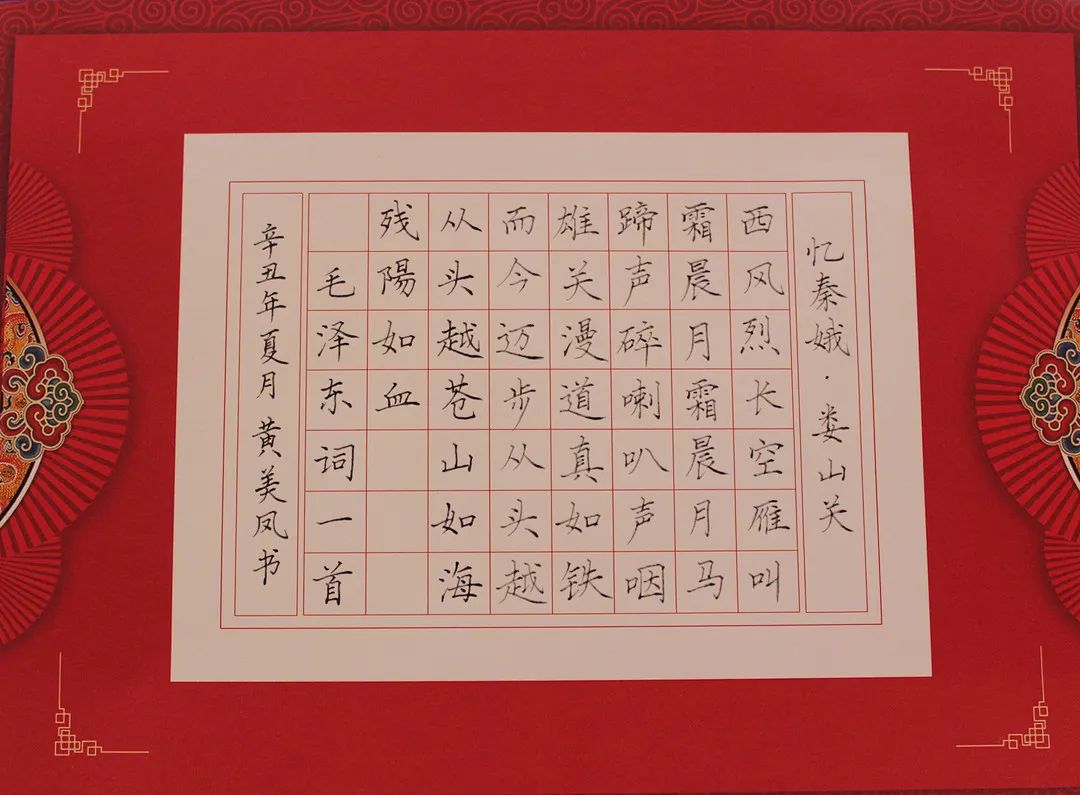 忆秦娥·娄山关
西风烈长空雁叫
霜晨月霜晨月马
蹄声碎喇叭声咽
雄关漫道真如铁
而今迈步从头越
从头越苍山如海
残陽如血
毛泽东词一首
辛丑年夏月 黄美凤书